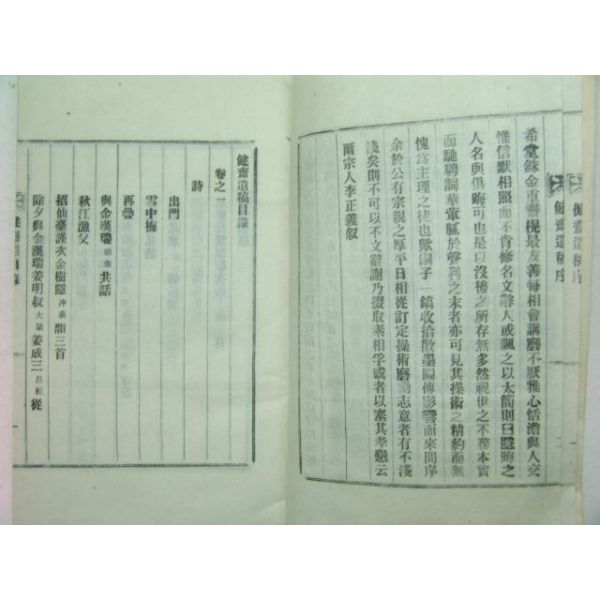 健齋遺稿序
健齋遺稿序
希堂錄金重響楻最友善每相會講磨不厭雅心恬澹與人交
惟信默相照而不肯修名文辭人或諷之以太簡則曰隱晦之
人名與俱晦可也是以沒後之所存無多然視世之不務本實
而馳騁詞華葷膩於聲利之末者亦可見其操術之精約而無
愧爲主理之徒也歟園子一鎬收拾散墨圖傳影響而來問序
余於公有宗親之厚平日相從訂定操術磨勵志意者有不淺
淺矣則不可以不文辭謝乃掇取素相孚或者以塞其孝懇云
爾宗人李正義敘
健齋遺稿目錄
卷之一
詩
出門
雪中梅
再疊
與金漢瑞 共話
秋江漁父
招仙臺謹次金樹隱 冲漢 韻三首
除夕與金漢瑞姜明叔 姜成三 從